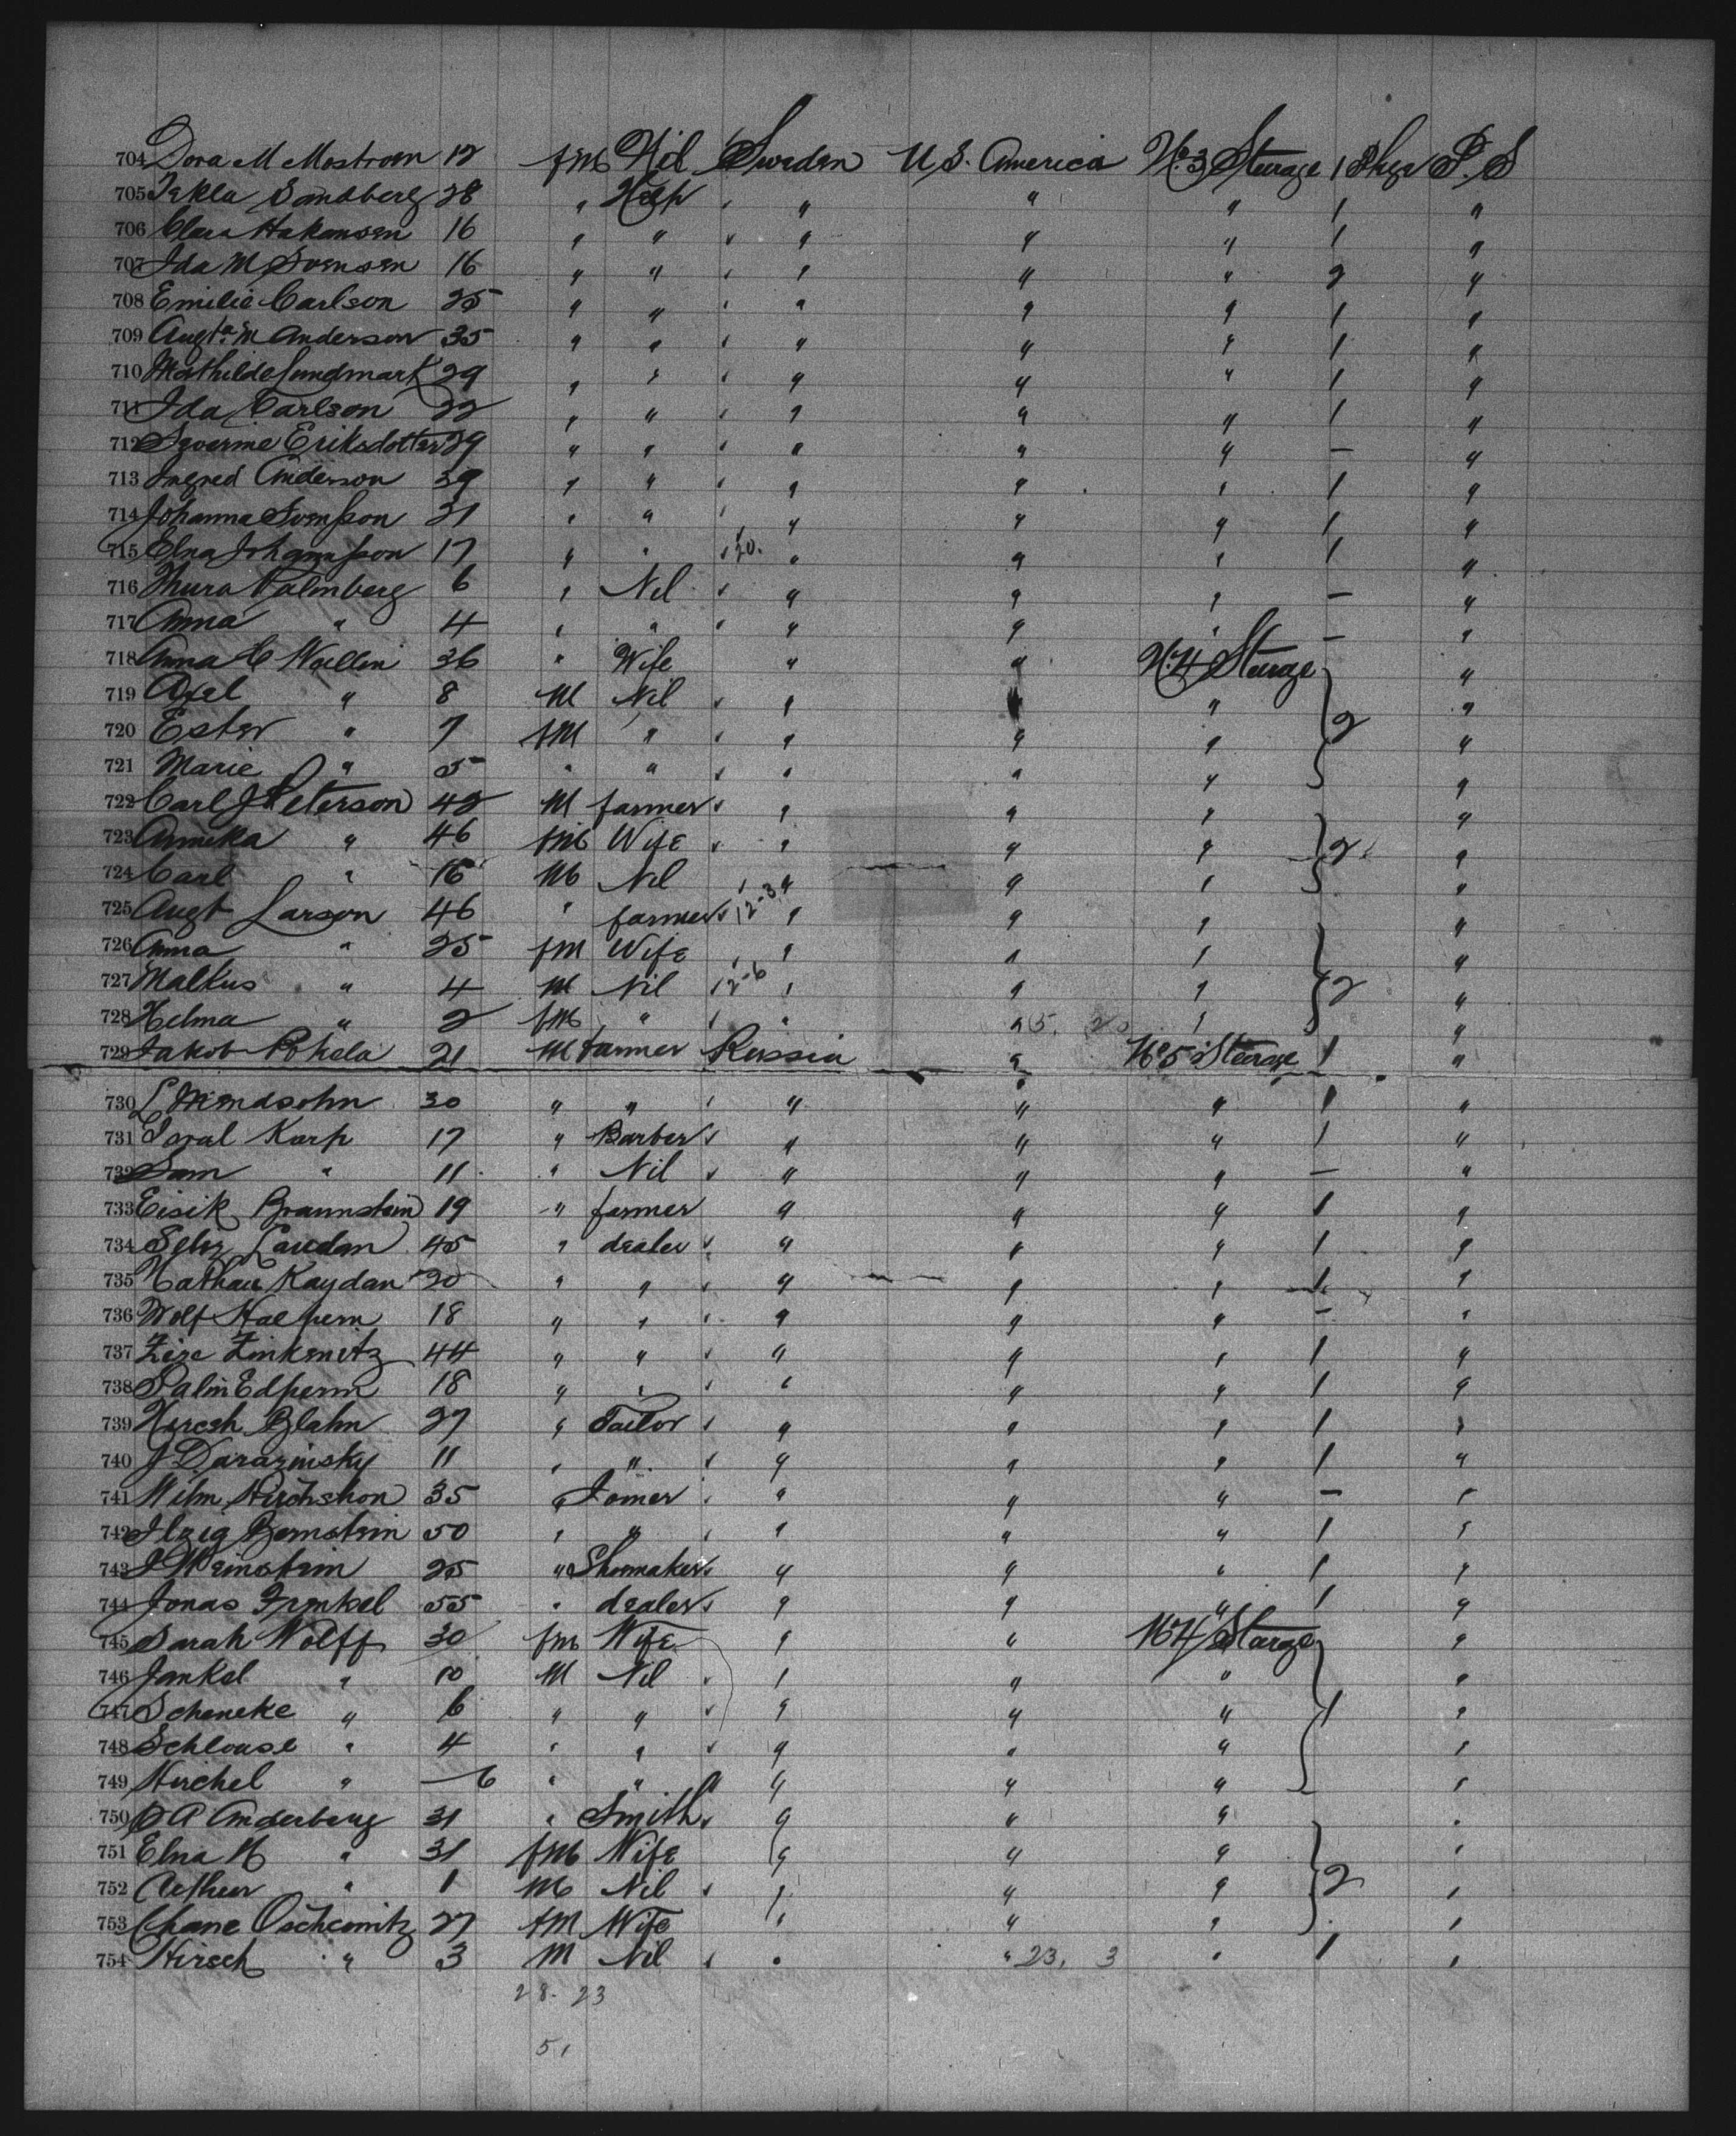 704 Dora M Mostrom 12 fm Nil Sweden U S. America No. 3 Steerage 1 Pkge P. S
705 Tekla Sandberg 28 " Help " " " 1 "
706 Clara Hakansen 16 " " " " " 1 "
707 Ida M Svensen 16 " " " " " 2 "
708 Emilie Carlson 25 " " " " " 1 "
709 Augta M Anderson 35 " " " " " 1 "
710 Mathilde Lundmark 29 " " " " " 1 "
711 Ida Carlson 22 " " " " " 1 "
712 Severine Eriksdotter 29 " " " " " — "
713 Ingred Anderson 39 " " " " " 1 "
714 Johanna Svensson 21 " " " " " 1 "
715 Elna Johansson 17 " " 20. " " " 1 "
716 Thura Palmberg 6 " Nil " " " — "
717 Anna " 4 " " " " " — "
718 Anna C Wallin 36 " Wife " " No. 4 Steerage "
719 Axel " 8 M Nil " " " "
720 Ester " 7 fM " " " " 2 "
721 Marie " 5 " " " " " "
722 Carl J Peterson 42 M farmer " " " "
723 Annika " 46 fm Wife " " " 2 "
724 Carl " 16 M Nil " " " "
725 Augt Larson 46 " farmer 12-3 " " " "
726 Anna " 25 fM Wife " " " "
727 Malkus " 4 M Nil 12-6 " " " 2 "
728 Helma " 2 fM " " " 5. 20 " "
729 Jakob Pokela 21 M farmer Russia " No 5 Steerage 1 "
730 L Mendsohn 30 " " " " " 1 "
731 Isral Karp 17 " Barber " " " 1 "
732 Sam " 11 " Nil " " " — "
733 Eisik Braunstein 19 " farmer " " " 1 "
734 Selig Laudan 45 " dealer " " " 1 "
735 Nathan Kaydan 20 " " " " " 1 "
736 Wolf Halpern 18 " " " " " — "
737 Zire Zinkewitz 44 " " " " " 1 "
738 Salm Edperm 18 " " " " " 1 "
739 Hirsch Blahn 27 " Tailor " " " 1 "
740 J Darazinsky 11 " " " " " 1 "
741 Wilm Hirchshon 35 " Joiner " " " — "
742 Itzig Bernstein 50 " " " " " 1 "
743 J Weinstein 25 " Shoemaker " " " 1 "
744 Jonas Frenkel 55 " dealer " " " 1 "
745 Sarah Wolff 30 fm Wife " " No 4 Steerage "
746 Jankel " 10 M Nil " " " "
747 Scheneke " 6 " " " " " 1 "
748 Schlouse " 4 " " " " " "
749 Hirchel " —6 " " " " " "
750 O A Anderberg 31 " Smith " " " "
751 Elna M " 31 fM Wife " " " "
752 Arthur " 1 M Nil " " " 2 "
753 Chane Oschcowitz 27 fM Wife " " " "
754 Hirsch " 3 M Nil " " 23. 3 " 1 "
28-23
51